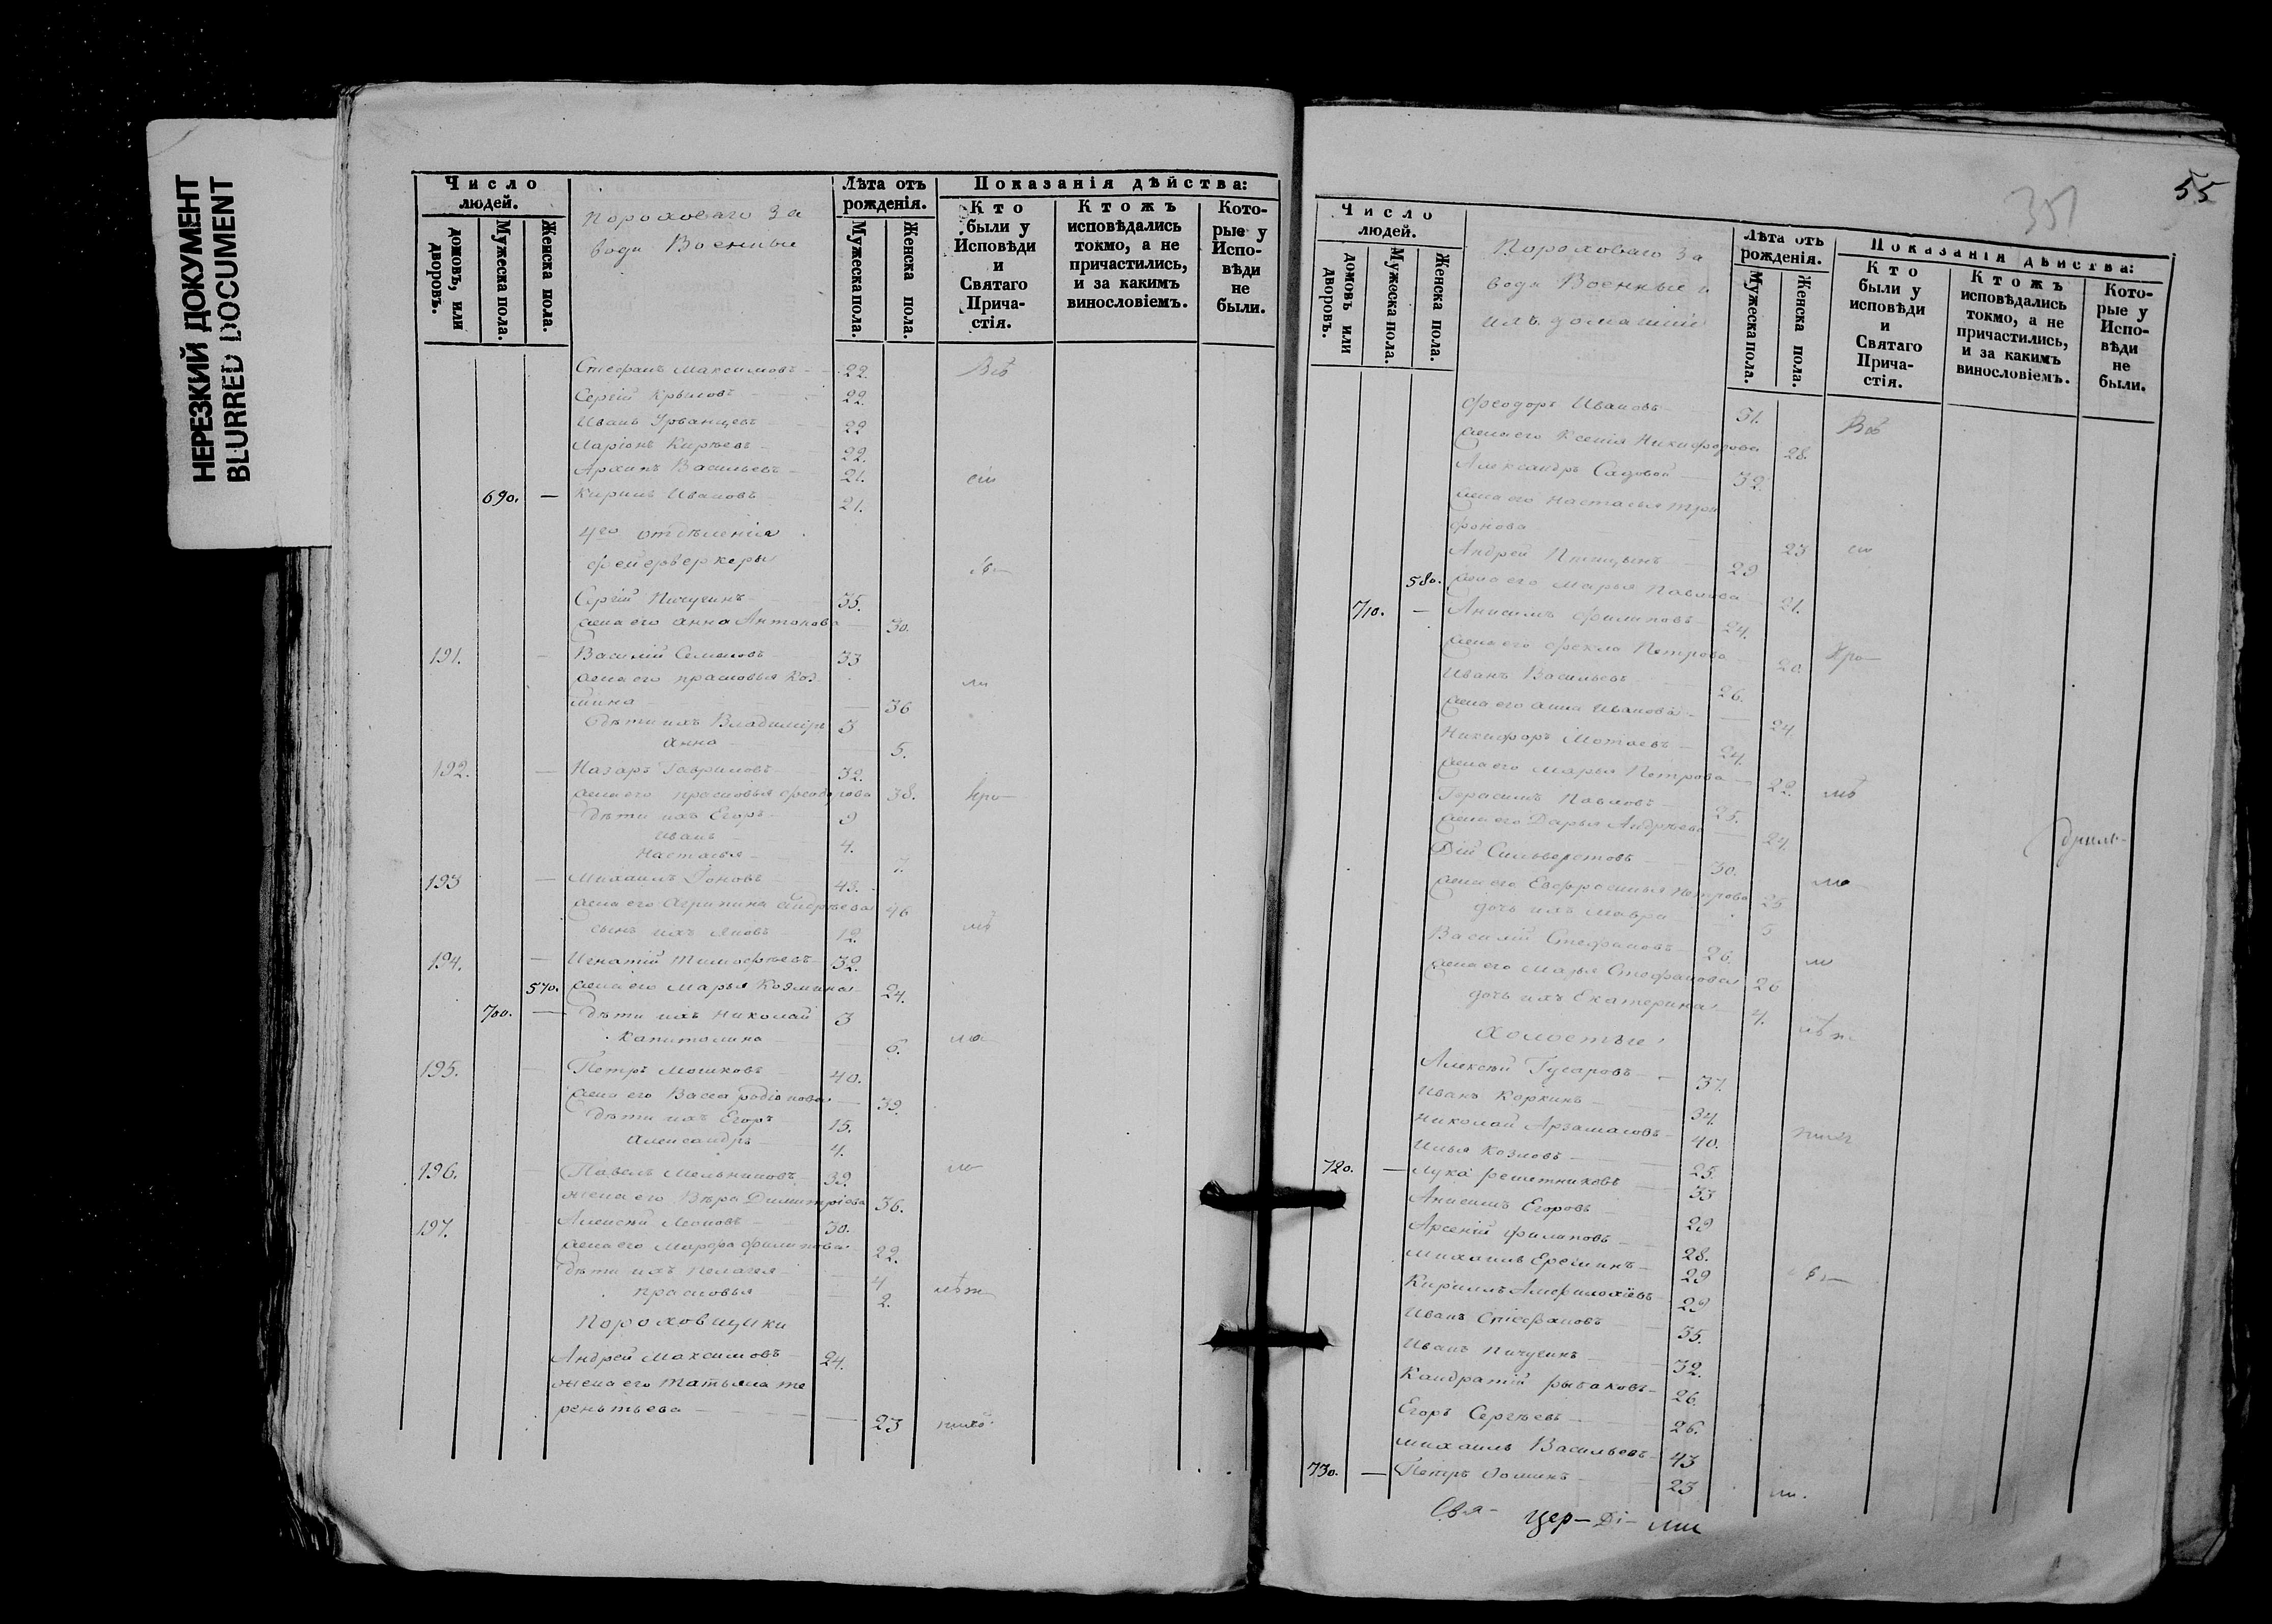 НЕРЕЗКИЙ ДОКУМЕНТ
BLURRED DOCUMENT
Число людей.
домовъ, или дворовъ.
Мужеска пола.
Женска пола.
Пороховаго за
вода Военные
Лѣта отъ рожденія.
Мужеска пола.
Женска пола.
Показанія дѣйства:
Кто были у Исповѣди и Святаго Прича-стія.
Ктожъ исповѣдались токмо, а не причастились, и за какимъ винословіемъ.
Кото-рые у Испо-вѣди не были.
Стефанъ Максимовъ 22. Всѣ
Сергій Крыловъ 22.
Иванъ Урванцевъ 22
Ларіонъ Кирѣевъ 22.
Архипъ Васильевъ 21. сіи
690. — Кирилъ Ивановъ 21.
4го отдѣленія
фейерверкеры
Сергій Пичугинъ 35.
жена его Анна Антонова 30.
191. — Василій Семеновъ 33
жена его Прасковья Коз
мина 36
дѣти ихъ Владиміръ 3
Анна 5.
192. — Назаръ Гавриловъ 32.
жена его Прасковья Феодорова 38.
дѣти ихъ Егоръ 9
Иванъ 4.
Настасья 7.
193 — Михаилъ Іоновъ 43.
жена его Агрипина Андрѣева 46
сынъ ихъ Яковъ 12.
194. — Игнатій Тимофѣевъ 32.
570. жена его Марья Козмина 24.
700. — дѣти ихъ Николай 3
Капитолина 6.
195. Петръ Мошковъ 40.
жена его Васса Родіонова 39.
дѣти ихъ Егоръ 15.
Александръ 4.
196. Павелъ Мельниковъ 39.
жена его Вѣра Димитріева 36.
197. Алексѣй Леоновъ 30.
жена его Марфа Филипова 22.
дѣти ихъ Пелагея 4
Прасковья 2.
Пороховщики
Андрей Максимовъ 24.
жена его Татьяна Те
рентьева 23
55
351
Число людей.
домовъ или дворовъ.
Мужеска пола.
Женска пола.
Пороховаго за
вода Военные и
ихъ домашніи
Лѣта отъ рожденія.
Мужеска пола.
Женска пола.
Показанія дѣйства:
Кто были у исповѣди и Святаго Прича-стія.
Ктожъ исповѣдались токмо, а не причастились, и за какимъ винословіемъ.
Кото-рые у Испо-вѣди не были.
Феодоръ Ивановъ 31. Всѣ
жена его Ксенія Никифорова 28.
Александръ Садовой 32.
жена его Настасья Три
фонова 23
Андрей Птицынъ 29
580. жена его Марья Павлова 21.
710. — Анисимъ Филиповъ 24.
жена его Фекла Петрова 20.
Иванъ Васильевъ 26.
жена его Анна Иванова 24
Никифоръ Мотаевъ 24.
жена его Марья Петрова 22.
Герасимъ Павловъ 25.
жена его Дарья Андрѣева 24.
Сильверстовъ 30.
жена его Евфросинья Петрова 25
дочь ихъ Мавра 5
Василій Стефановъ 26.
жена его Марья Стефанова 26
дочь ихъ Екатерина 4.
Холостые
Алексѣй Гусаровъ 37.
Иванъ Коркинъ 34.
Николай Арзамасовъ 40.
Илья Козловъ 25.
720. — Лука Решетниковъ 33
Анисимъ Егоровъ 29
Арсеній Филиповъ 28.
Михаилъ Еремкинъ 29
Кирилъ Амфилохіевъ 29
Иванъ Стефановъ 35.
Иванъ Пичугинъ 32.
Кандратій Рыбаковъ 26.
Егоръ Сергѣевъ 26.
Михаилъ Васильевъ 43
730. — Петръ Фоминъ 23
Цер—